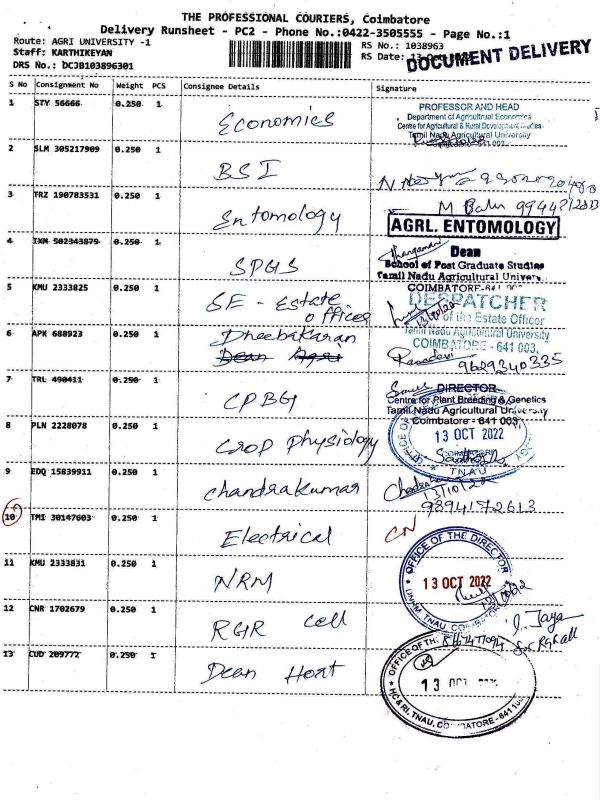 THE PROFESSIONAL COURIERS, Coimbatore
Delivery Runsheet - PC2 - Phone No.:0422-3505555 - Page No.:1
Route: AGRI UNIVERSITY -1
Staff: KARTHIKEYAN
DRS No.: DCJB103896301
RS No.: 1038963
RS Date: 13
DOCUMENT DELIVERY
S No Consignment No Weight PCS Consignee Details Signature
1 STY 56666 0.250 1 Economics
PROFESSOR AND HEAD
Department of Agricultrual Economics
Centre for Agricultural & Rural Development Studies
Tamil Nadu Agricultural University
2 SLM 305217909 0.250 1 BSI
3 TRZ 190783531 0.250 1 Entomology
M Balu
AGRL. ENTOMOLOGY
4 IXM 502343879 0.250 1 SPGS
Thangamani
Dean
School of Post Graduate Studies
Tamil Nadu Agricultural University
COIMBATORE-641
5 KMU 2333825 0.250 1 SE - Estate
offices
DESPATCHER
of the Estate Officer
Tamil Nadu Agricultural University
COIMBATORE - 641 003.
6 APK 688923 0.250 1 Dheebakaran
Dean Agri
Ramadevi
9629340335
7 TRL 490411 0.250 1 CPBG
DIRECTOR
Centre for Plant Breeding & Genetics
Tamil Nadu Agricultural University
Coimbatore - 641 003
8 PLN 2228078 0.250 1 Crop physiology
OFFICE OF
13 OCT 2022
TNAU
9 EDQ 15839911 0.250 1 Chandrakumar
13/10/22
9894172613
10 TMI 30147603 0.250 1 Electrical
CN
11 KMU 2333831 0.250 1 NRM
OFFICE OF THE DIRECTOR
13 OCT 2022
12 CNR 1702679 0.250 1 RGR cell
J. Jaya
for RGR cell
13 CUD 209772 0.250 1 Dean Hort
OFFICE OF TH
13 OCT
HC & RI, TNAU, COIMBATORE - 641